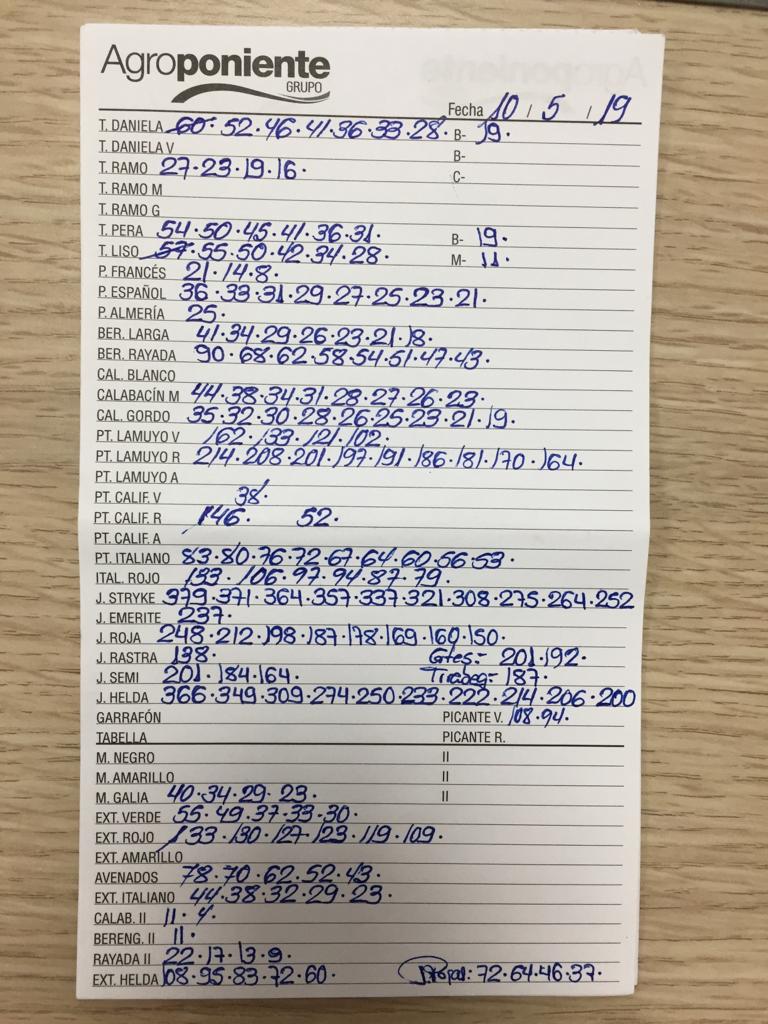 Agroponiente
GRUPO
Fecha 10 / 5 / 19
T. DANELA 60. 52. 46. 41. 36. 33. 28. B- 19.
T. DANIELA V B-
T. RAMO 27. 23. 19. 16. C-
T. RAMO M
T. RAMO G
T. PERA 54. 50. 45. 41. 36. 31. B- 19.
T. LISO 57. 55. 50. 42. 34. 28. M- 11.
P. FRANCÉS 21. 14. 8.
P. ESPAÑOL 36. 33. 31. 29. 27. 25. 23. 21.
P. ALMERÍA 25.
BER. LARGA 41. 34. 29. 26. 23. 21. 18.
BER. RAYADA 90. 68. 62. 58. 54. 51. 47. 43.
CAL. BLANCO
CALABACÍN M 44. 38. 34. 31. 28. 27. 26. 23.
CAL. GORDO 35. 32. 30. 28. 26. 25. 23. 21. 19.
PT. LAMUYO V 162. 133. 121. 102.
PT. LAMUYO R 214. 208. 201. 197. 191. 186. 181. 170. 164.
PT. LAMUYO A
PT. CALIF. V 38.
PT. CALIF. R 146. 52.
PT. CALIF. A
PT. ITALIANO 83. 80. 76. 72. 67. 64. 60. 56. 53.
ITAL. ROJO 133. 106. 97. 94. 87. 79.
J. STRYKE 379. 371. 364. 357. 337. 321. 308. 275. 264. 252
J. EMERITE 237.
J. ROJA 248. 212. 198. 187. 178. 169. 160. 150.
J. RASTRA 138. Gtes.- 201. 192.
J. SEMI 201. 184. 164. Tirabeq- 187.
J. HELDA 366. 349. 309. 274. 250. 233. 222. 214. 206. 200
GARRAFÓN PICANTE V. 108. 94.
TABELLA PICANTE R.
M. NEGRO II
M. AMARILLO II
M. GALIA 40. 34. 29. 23. II
EXT. VERDE 55. 49. 37. 33. 30.
EXT. ROJO 133. 130. 127. 123. 119. 109.
EXT. AMARILLO
AVENADOS 78. 70. 62. 52. 43.
EXT. ITALIANO 44. 38. 32. 29. 23.
CALAB. II 11. 4.
BERENG. II 11.
RAYADA II 22. 17. 13. 9.
EXT. HELDA 108. 95. 83. 72. 60. : 72. 64. 46. 37.